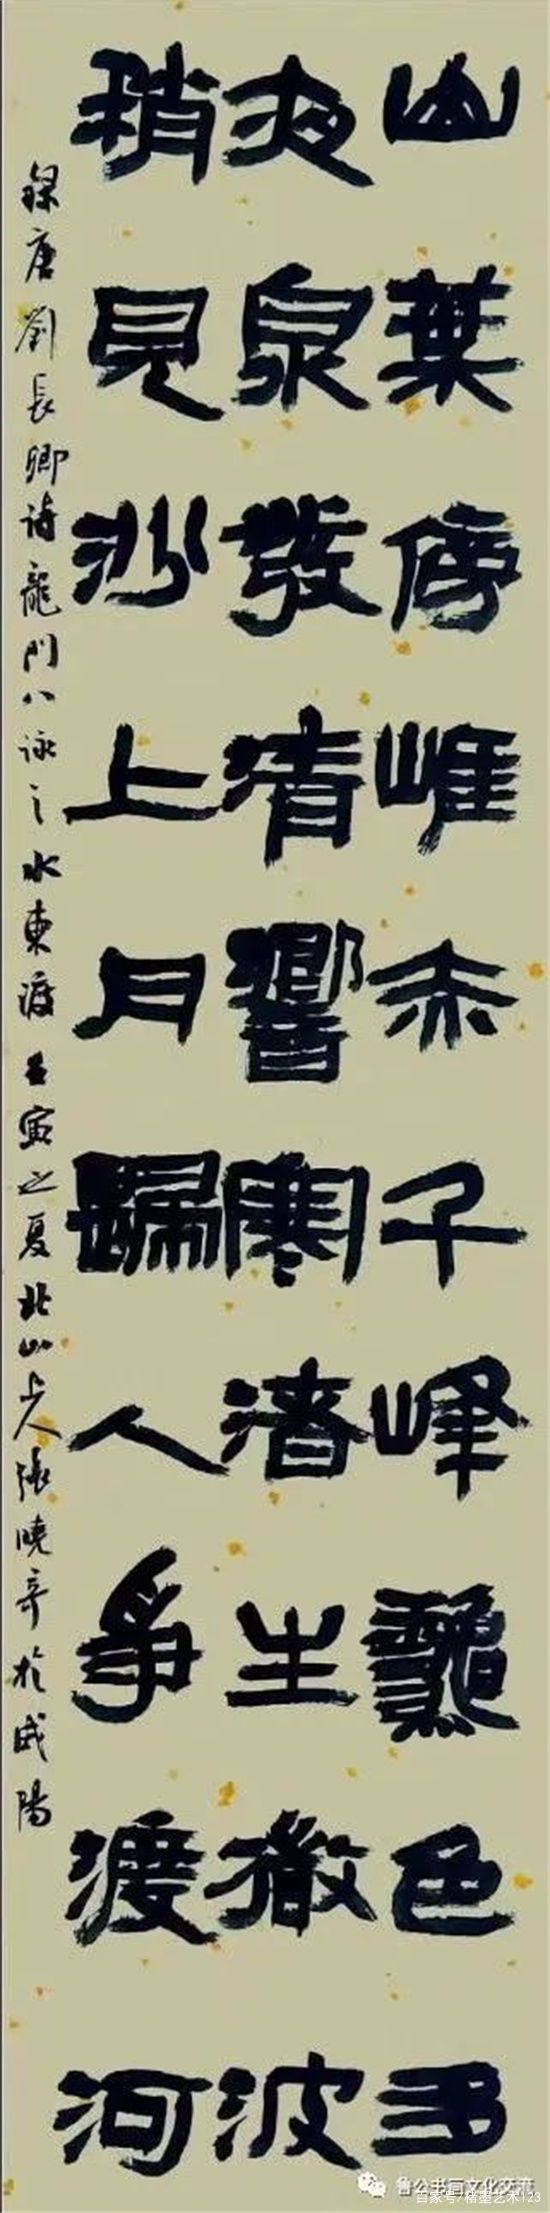 山葉傍崖赤千峰龝色多
夜泉發清響寒渚生微波
稍見沙上月歸人爭渡河
録唐劉長卿詩龍門八詠之水東渡壬寅之夏北山上人張曉奇於咸陽
鲁公书画文化交流
百家号/楮墨艺术123